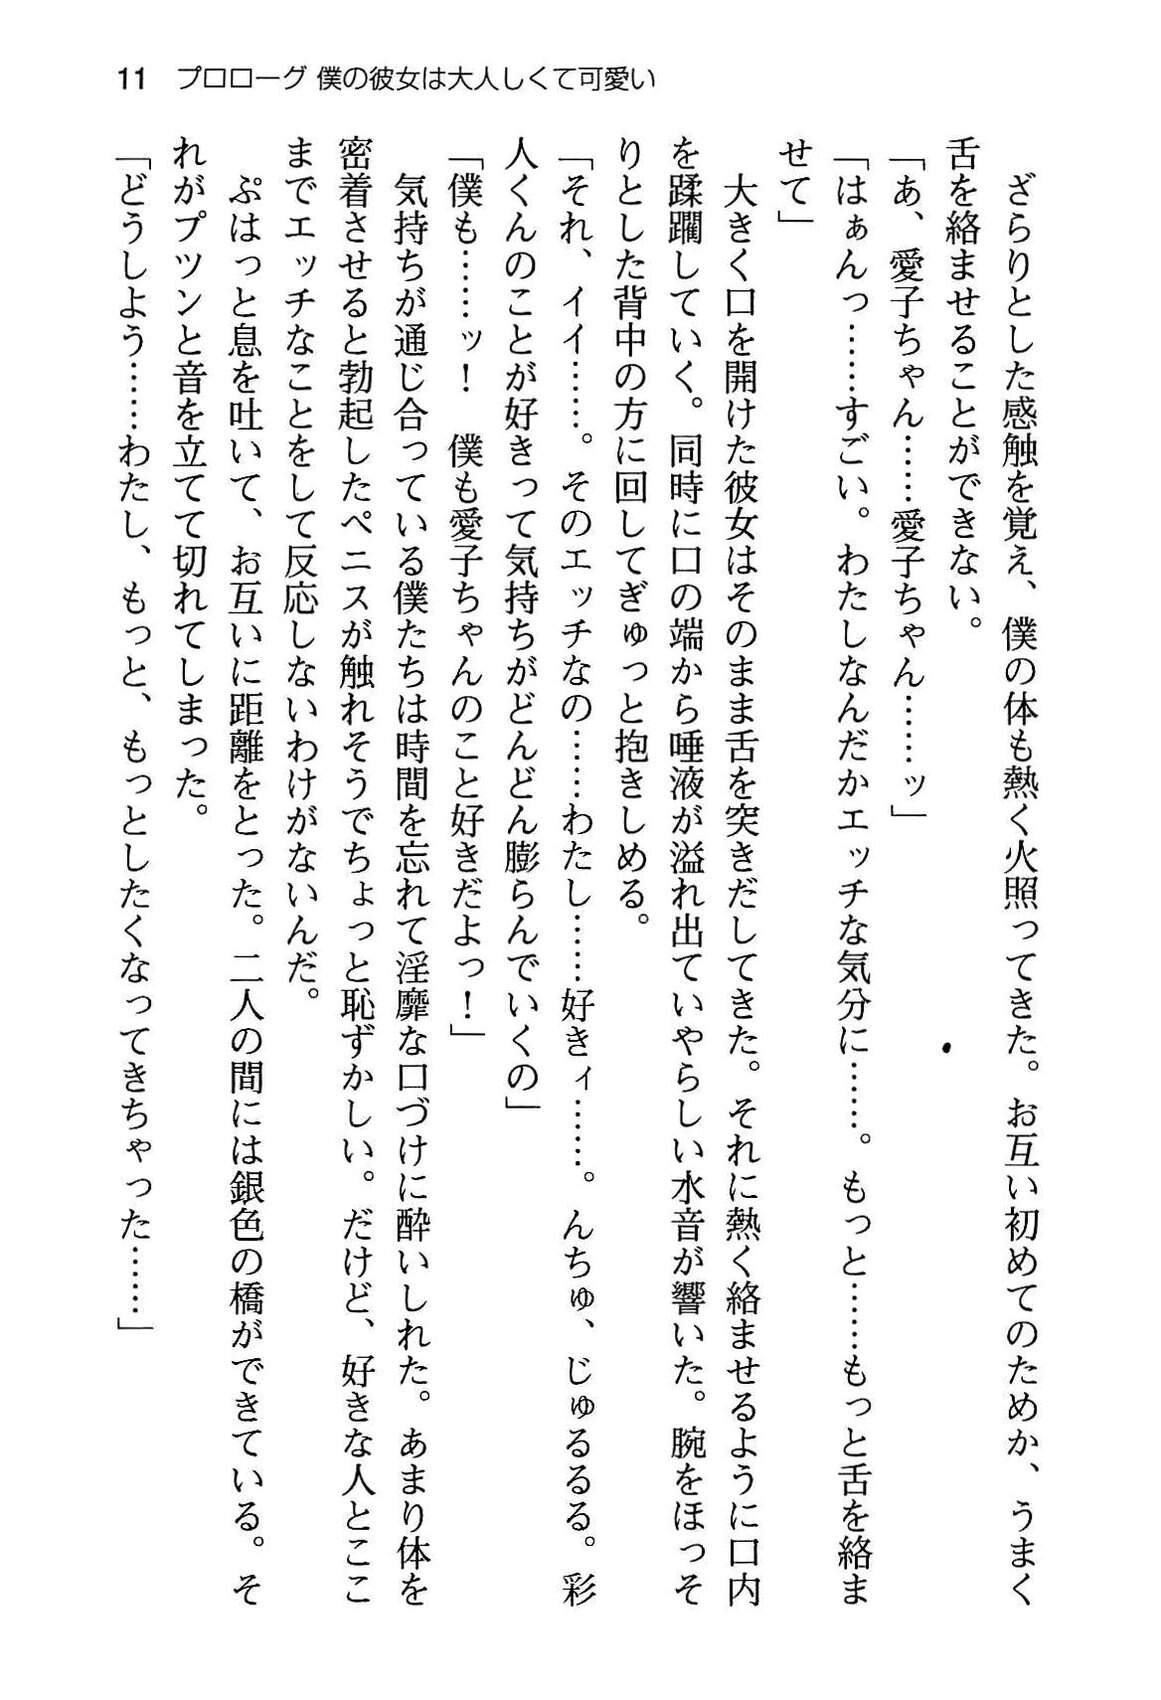 11 プロローグ 僕の彼女は大人しくて可愛い
ざらりとした感触を覚え、僕の体も熱く火照ってきた。お互い初めてのためか、うまく
舌を絡ませることができない。
「あ、愛子ちゃん……愛子ちゃん……ッ」
「はぁんっ……すごい。わたしなんだかエッチな気分に……。もっと……もっと舌を絡ま
せて」
大きく口を開けた彼女はそのまま舌を突きだしてきた。それに熱く絡ませるように口内
を蹂躙していく。同時に口の端から唾液が溢れ出ていやらしい水音が響いた。腕をほっそ
りとした背中の方に回してぎゅっと抱きしめる。
「それ、イイ……。そのエッチなの……わたし……好きィ……。んちゅ、じゅるるる。彩
人くんのことが好きって気持ちがどんどん膨らんでいくの」
「僕も……ッ！　僕も愛子ちゃんのこと好きだよっ！」
気持ちが通じ合っている僕たちは時間を忘れて淫靡な口づけに酔いしれた。あまり体を
密着させると勃起したペニスが触れそうでちょっと恥ずかしい。だけど、好きな人とここ
までエッチなことをして反応しないわけがないんだ。
ぷはっと息を吐いて、お互いに距離をとった。二人の間には銀色の橋ができている。そ
れがプツンと音を立てて切れてしまった。
「どうしよう……わたし、もっと、もっとしたくなってきちゃった……」